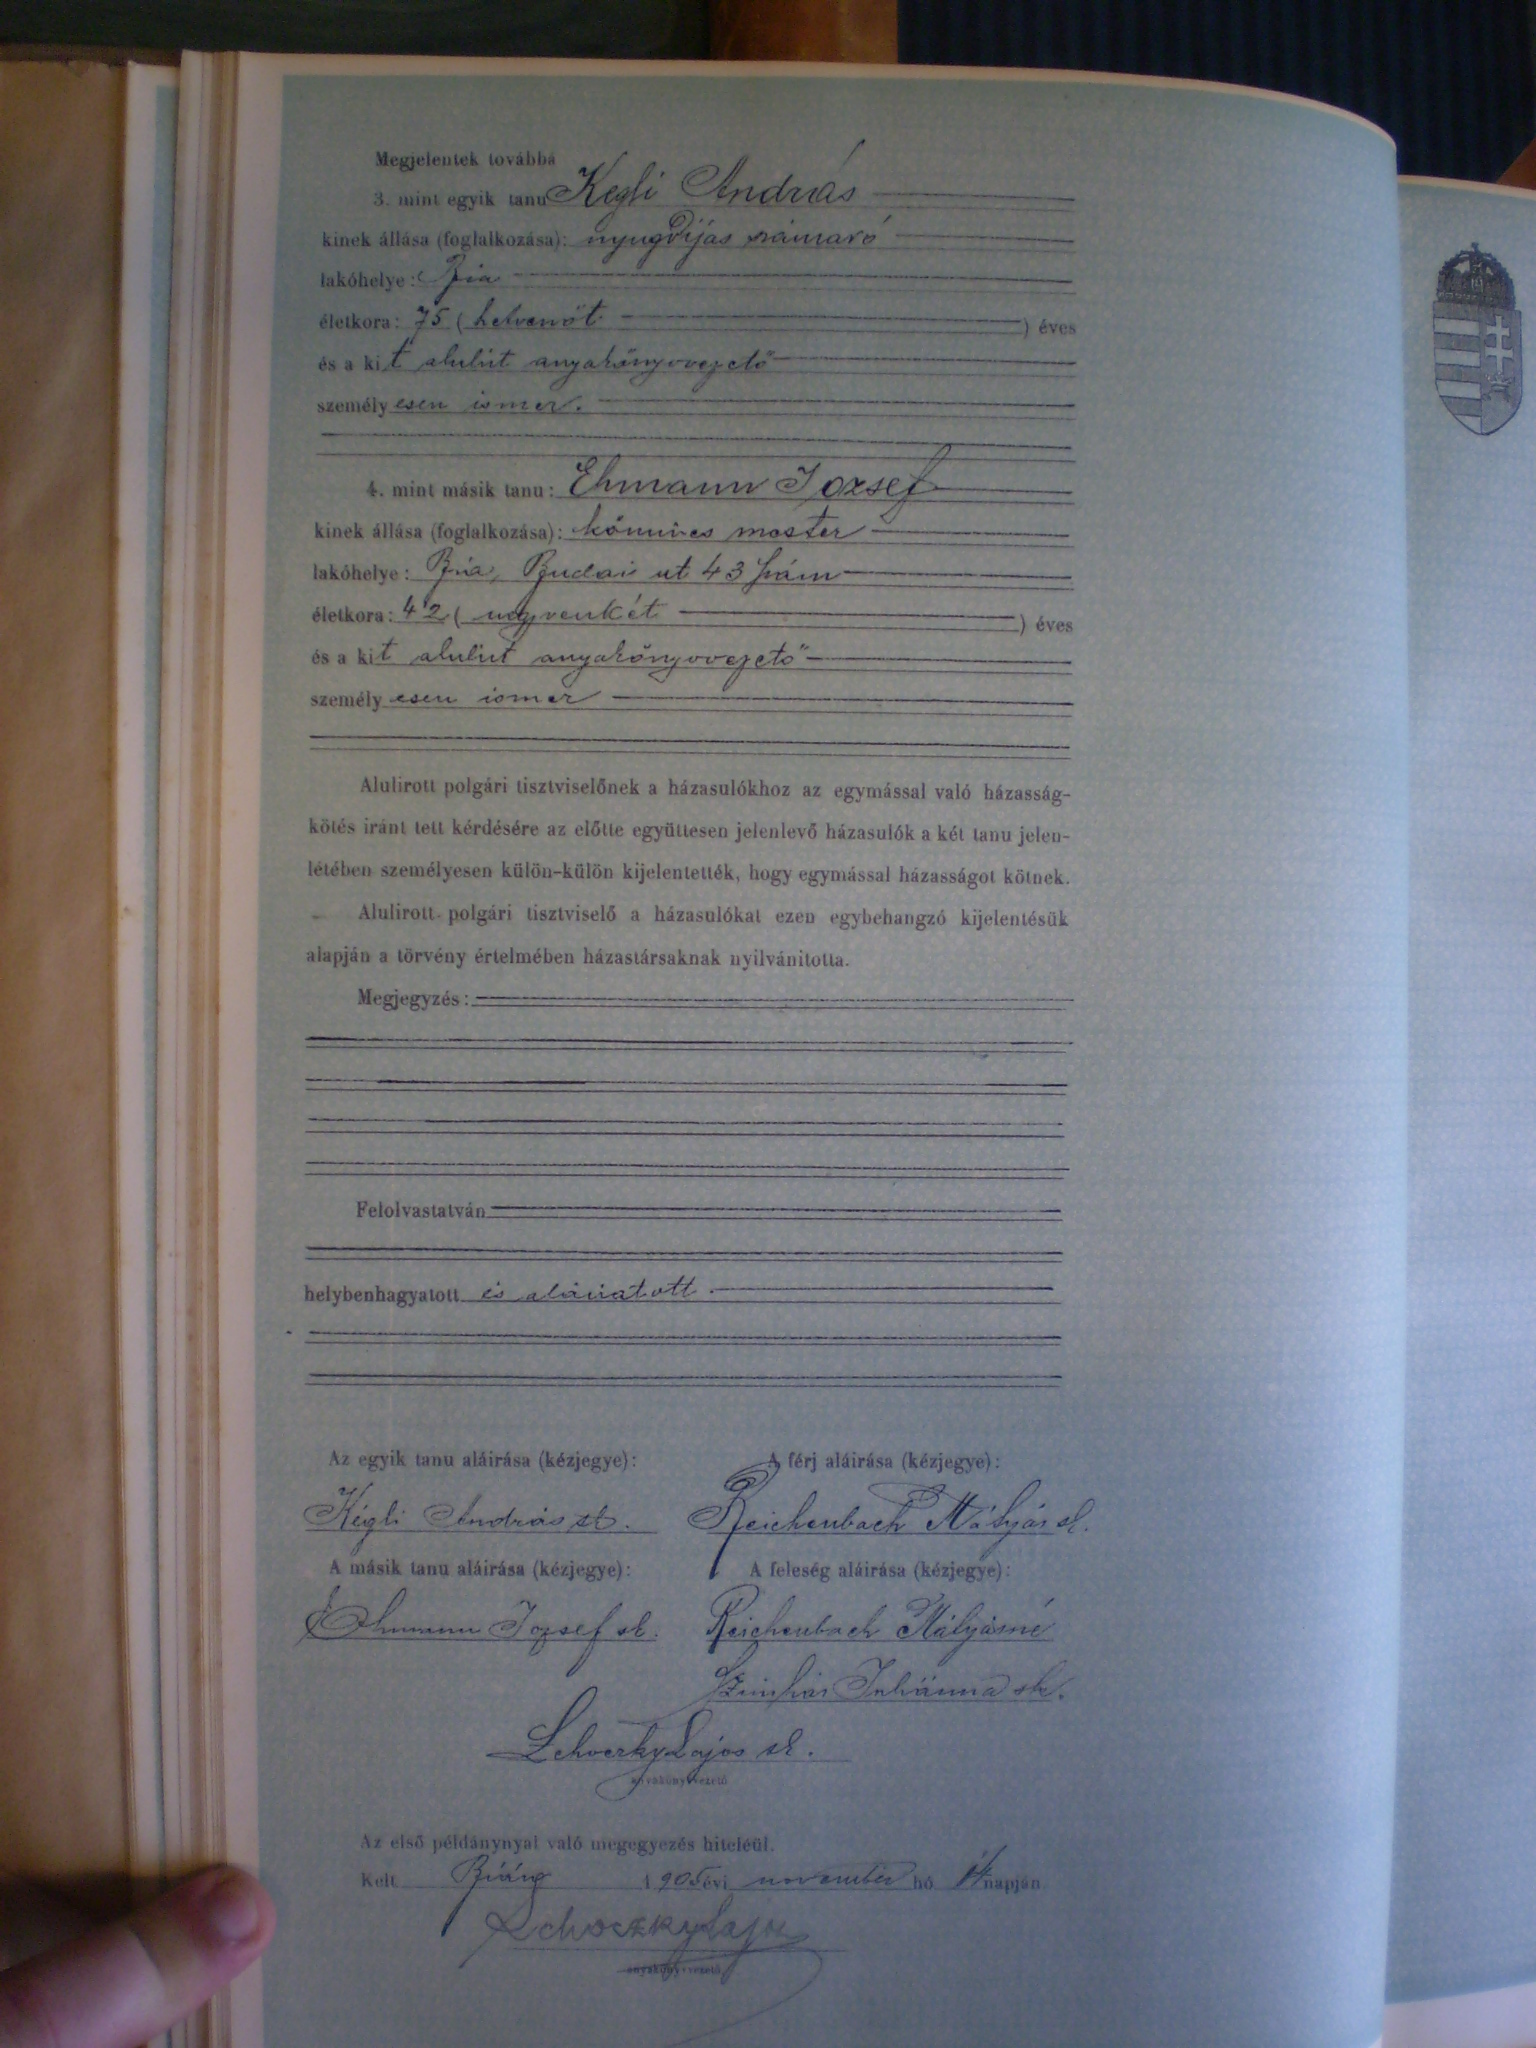 Megjelentek továbbá
3. mint egyik tanu Kegli András
kinek állása (foglalkozása): nyugdijas számtartó
lakóhelye: Bia
életkora: 75 ( hetvenöt ) éves
és a kit alulirt anyakönyvvezető
személyesen ismer.
4. mint másik tanu: Ehmann Jozsef
kinek állása (foglalkozása): kőmives mester
lakóhelye: Bia, Budai ut 43 szám
életkora: 42 ( negyvenkét ) éves
és a kit alulirt anyakönyvvezető
személyesen ismer
Alulirott polgári tisztviselőnek a házasulókhoz az egymással való házasság-
kötés iránt tett kérdésére az előtte együttesen jelenlevő házasulók a két tanu jelen-
létében személyesen külön-külön kijelentették, hogy egymással házasságot kötnek.
Alulirott polgári tisztviselő a házasulókat ezen egybehangzó kijelentésük
alapján a törvény értelmében házastársaknak nyilvánitotta.
Megjegyzés:
Felolvastatván
helybenhagyatott és aláiratott.
Az egyik tanu aláirása (kézjegye): A férj aláirása (kézjegye):
Kégli András sk. Reichenbach Mátyás sk.
A másik tanu aláirása (kézjegye): A feleség aláirása (kézjegye):
Ehmann Jozsef sk. Reichenbach Mátyásné
Johanna sk.
Lajos sk.
anyakönyvvezető
Az első példánynyal való megegyezés hiteléül.
Kelt Bián 1905 évi november hó napján
Lajos
anyakönyvvezető